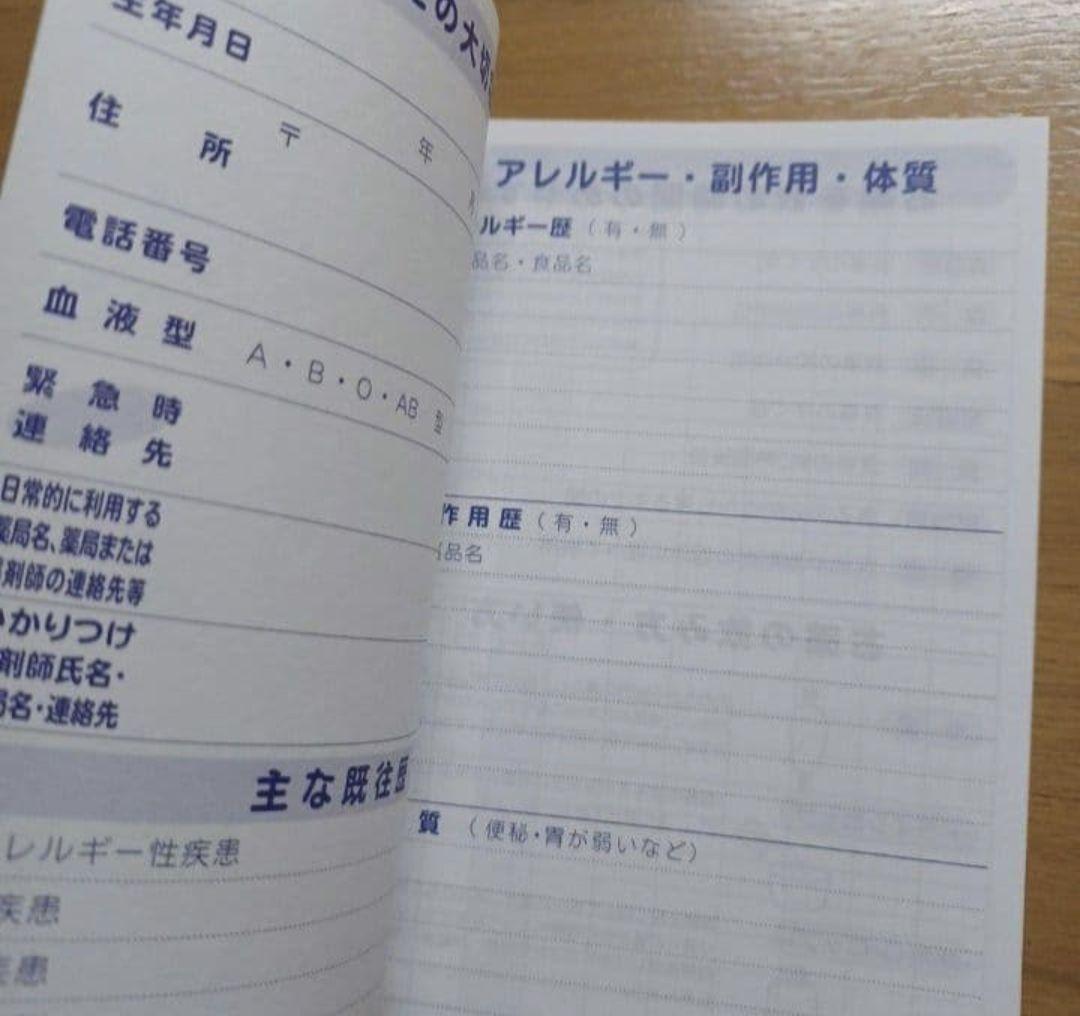 の大切
年月日
年
住所
〒
電話番号
血液型 A・B・O・AB 型
緊急時
連絡先
日常的に利用する
薬局名、薬局または
剤師の連絡先等
かかりつけ
剤師氏名・
局名・連絡先
主な既往歴
レルギー性疾患
疾患
疾患
アレルギー・副作用・体質
ルギー歴（有・無）
品名・食品名
作用歴（有・無）
品名
質（便秘・胃が弱いなど）